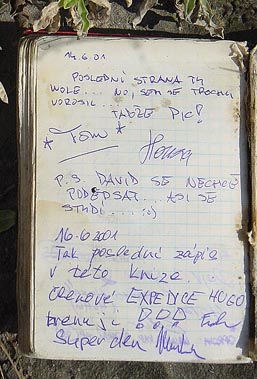 14.6.01
POSLEDNÍ STRANA TY
VOLE... NO, SEM SE TROCHU
TAKŽE PIC!
* Tom *
P.S. DAVID SE NECHCE
PODEPSAT... ASI SE
STYDÍ... :o)
16.6.2001
Tak poslední zápis
v této knize.
členové EXPEDICE HUGO
Super den